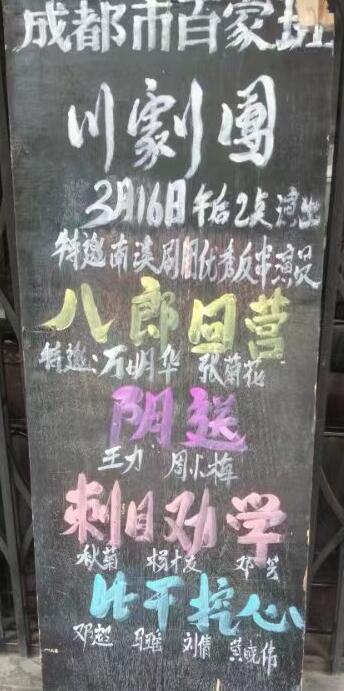 成都市百家班
川劇團
3月16日午后2点演出
特邀南溪剧团优秀反串演员
八郎回营
特邀:石明华 张菊花
阴送
王力 周小梅
刺目劝学
秋菊 杨才友 邓芳
比干挖心
邓超 马骏 刘倩 黄晓伟